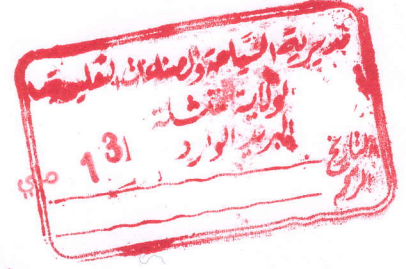 مديرية السياحة والصناعات التقليدية
لولاية خنشلة
البريد الوارد
التاريخ 13 ماي
الرقم